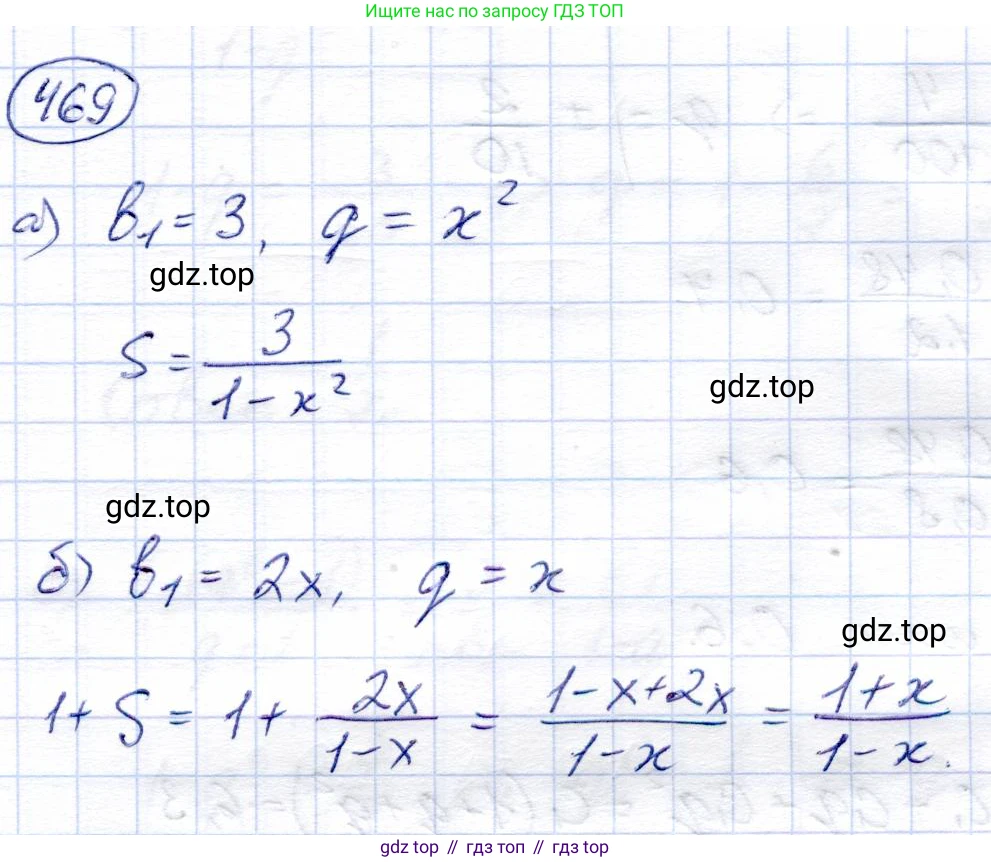 Ищите нас по запросу ГДЗ ТОП
469
а) b₁ = 3, q = x²
gdz.top
S = 3/(1 - x²)
gdz.top
gdz.top
б) b₁ = 2x, q = x
gdz.top
1 + S = 1 + 2x/(1 - x) = (1 - x + 2x)/(1 - x) = (1 + x)/(1 - x).
gdz.top // гдз топ // gdz.top